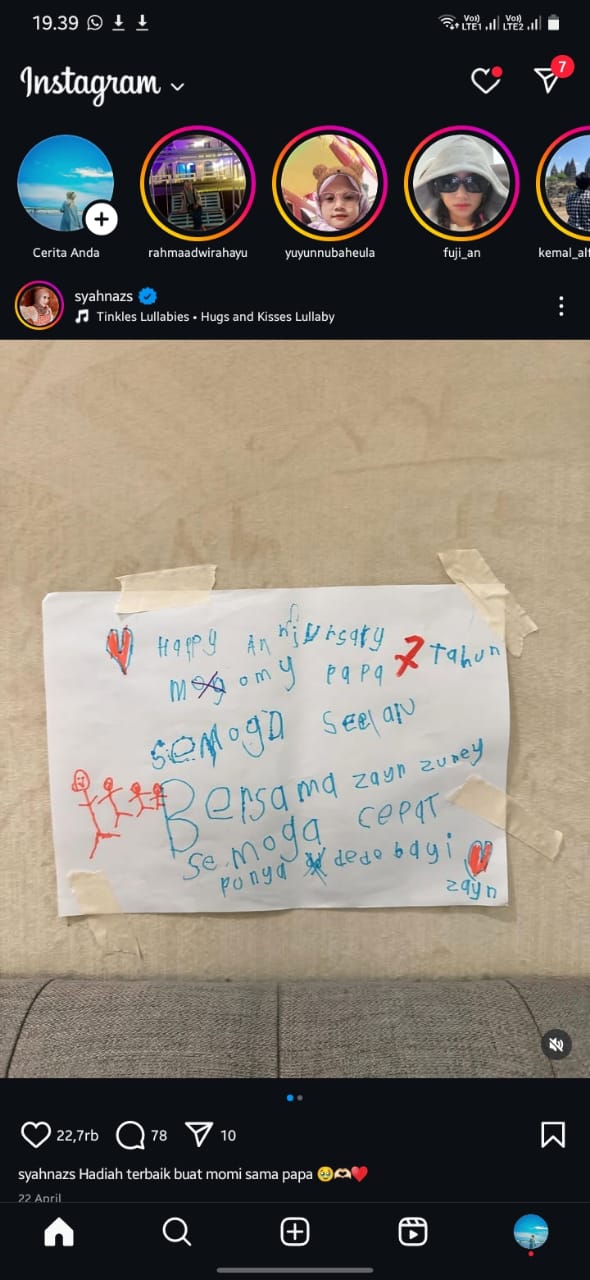 19.39
Vo) LTE1 Vo) LTE2
Instagram
7
Cerita Anda
rahmaadwirahayu
yuyunnubaheula
fuji_an
kemal_alf
syahnazs
Tinkles Lullabies • Hugs and Kisses Lullaby
Happy Anniversary 7 Tahun
momy papa
semoga seelan
Bersama zayn zuney
semoga cepat
punya dede bayi
zayn
22,7rb
78
10
syahnazs Hadiah terbaik buat momi sama papa 🥹🫶❤️
22 April